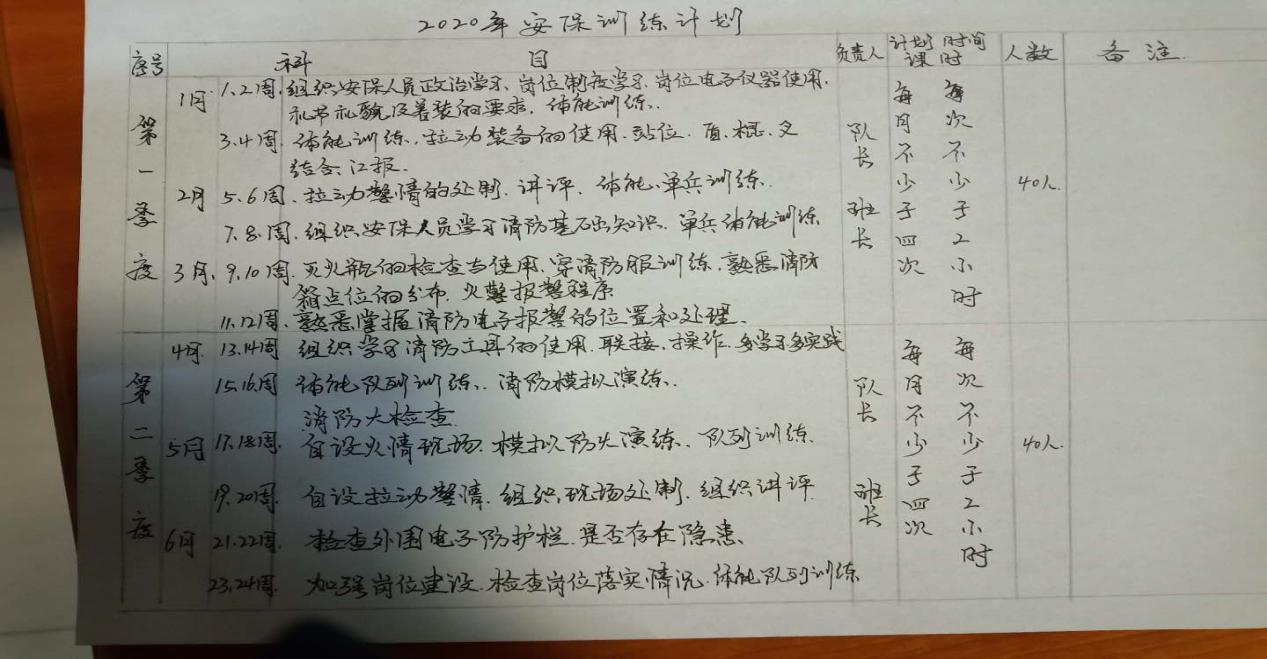 2020年安保训练计划
序号 科目 负责人 计划课时 时间 人数 备注
第一季度
1月 1.2周.组织安保人员政治学习、岗位制度学习.岗位电子仪器使用.
礼节礼貌及着装的要求.体能训练.
3.4周.体能训练.拉动装备的使用.站位.盾.棍.叉
结合.汇报.
2月 5.6周.拉动警情的处制.讲评.体能.单兵训练.
7.8.周.组织安保人员学习消防基础知识.单兵体能训练
3月.9.10周.灭火瓶的检查与使用.穿消防服训练.熟悉消防
箱点位的分布.火警报警程序
11.12周.熟悉掌握消防电子报警的位置和处理.
队长 班长
每月不少于四次
每次不少于2小时
40人.
第二季度
4月 13.14周 组织学习消防工具的使用.联接.操作.多学习多实践
15.16.周 体能队列训练.消防模拟演练.
消防大检查
5月 17.18周.自设火情现场.模拟防火演练.队列训练.
19.20周.自设拉动警情.组织现场处制.组织讲评
6月 21.22周.检查外围电子防护栏.是否存在隐患.
23.24周.加强岗位建设.检查岗位落实情况.体能队列训练
队长 班长
每月不少于四次
每次不少于2小时
40人.